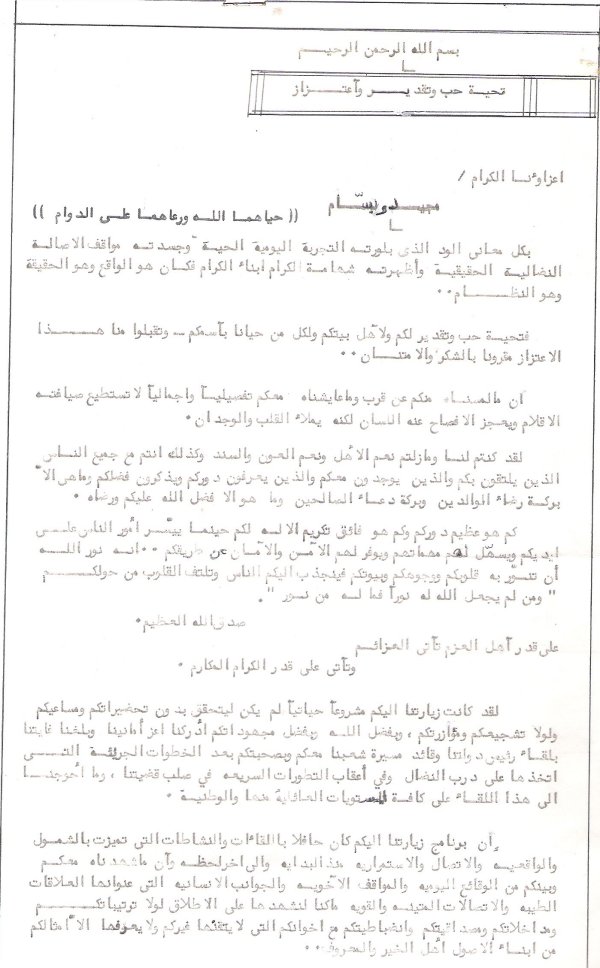 بسم الله الرحمن الرحيم
تحية حب وتقدير وآعتزاز
اعزاونا الكرام /
مجيد وبسّام (( حياهما الله ورعاهما على الدوام ))
بكل معاني الود الذي بلورته التجربة اليومية الحية وجسدته مواقف الاصالة
النضالية الحقيقية وأظهرته شهامة الكرام ابناء الكرام فكان هو الواقع وهو الحقيقة
وهو النظام ..
فتحية حب وتقدير لكم ولآهل بيتكم ولكل من حيانا بآسمكم - وتقبلوا منا هذا
الاعتزاز مقرونا بالشكر والامتنان ..
آن مالمسناه منكم عن قرب وماعايشناه معكم تفصيليآ واجماليآ لا تستطيع صياغته
الاقلام ويعجز الافصاح عنه اللسان لكنه يملاء القلب والوجدان .
لقد كنتم لنا ومازلتم نعم الاهل ونعم العون والسند وكذلك انتم مع جميع الناس
الذين يلتقون بكم والذين يوجدون معكم والذين يعرفون دوركم ويذكرون فضلكم وماهي الآ
بركة رضاء الوالدين وبركة دعاء الصالحين وما هو الا فضل الله عليكم ورضاه .
كم هو عظيم دوركم وكم هو فائق تكريم الاله لكم حينما ييسّر أمور الناس على
ايديكم ويسهّل لهم مهماتهم ويوفر لهم الآمن والآمان عن طريقكم .. انه نور الله
أن تنوّر به قلوبكم ووجوهكم وبيوتكم فينجذب اليكم الناس وتلتف القلوب من حولكم
" ومن لم يجعل الله له نورآ فما له من نور " .
صدق الله العظيم.
على قدر آهل العزم تآتى العزائم
وتآتي على قدر الكرام المكارم .
لقد كانت زيارتنا اليكم مشروعآ حياتيآ لم يكن ليتحقق بدون تحضيراتكم ومساعيكم
ولولا تشجيعكم ومؤازرتكم ، وبفضل الله وبفضل مجهوداتكم أدركنا اعز آمانينا وبلغنا غايتنا
بلقاء رئيس دولتنا وقائد مسيرة شعبنا معكم وبصحبتكم بعد الخطوات الجريئة التي
اتخذها على درب النضال وفي أعقاب التطورات السريعه في صلب قضيتنا ، وما آحوجنا
الى هذا اللقاء على كافة المستويات العائلية منها والوطنية .
إن برنامج زيارتنا اليكم كان حافلا باللقاءات والنشاطات التى تميزت بالشمول
والواقعيه والاتصال والاستمراريه منذ البدايه والى اخر لحظه وآن ماشهدناه معكم
وبينكم من الوقائع اليوميه والمواقف الآخويه والجوانب الانسانيه التى عنوانها العلاقات
الطيبه والاتصالات المتينه والقويه ماكنا لنشهدها على الاطلاق لولا ترتيباتكم
ومداخلاتكم ومصداقيتكم وانضباطيتكم مع اخوانكم التى لا يتقنها غيركم ولا يعرفها الا آمثالكم
من ابناء الاصول آهل الخير والمعروف ..